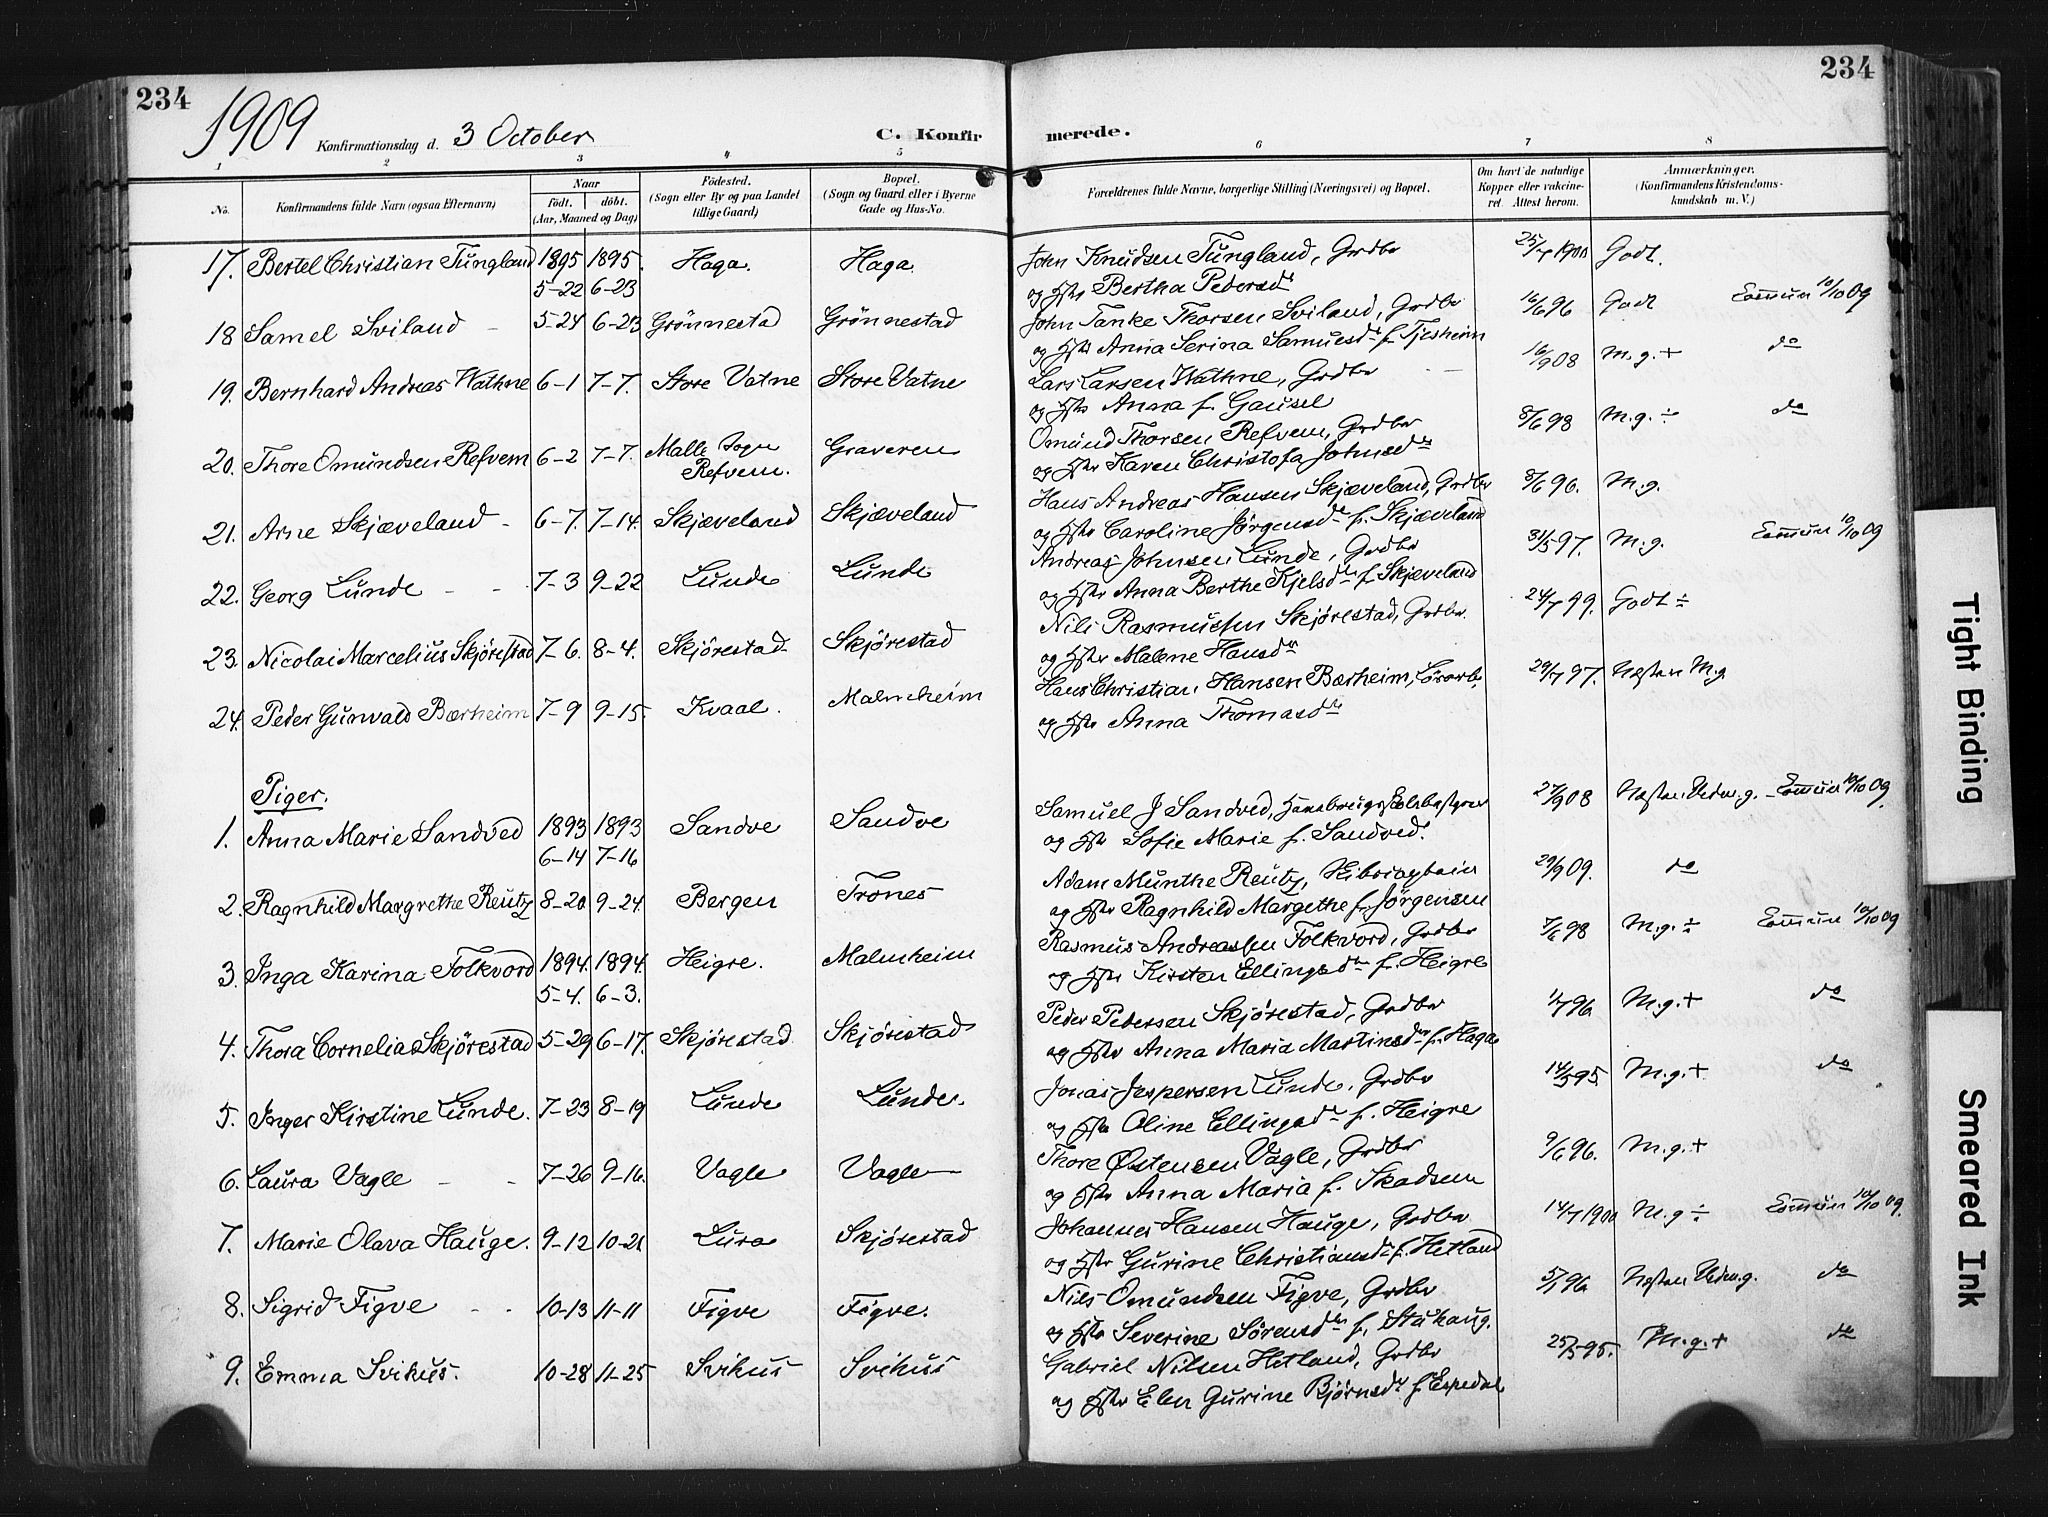 234
234
1909
Konfirmationsdag d. 3 October
C. Konfirmerede.
1 2 3 4 5 6 7 8
No.
Konfirmandens fulde Navn (ogsaa Efternavn)
Naar
født. døbt.
(Aar, Maaned og Dag)
Födested.
(Sogn eller By og paa Landet
tillige Gaard)
Bopæl.
(Sogn og Gaard eller i Byerne
Gade og Hus-No.
Forældrenes fulde Navne, borgerlige Stilling (Næringsvei) og Bopæl.
Om havt de naturlige
Kopper eller vakcine-
ret. Attest herom.
Anmærkninger.
(Konfirmandens Kristendoms-
kundskab m. V.)
17. Bertel Christian Tungland 1895 5-22 1895 6-23 Haga. Haga. John Knudsen Tungland, Grdbr 25/7 1900 Godt.
og Hstr Bertha Pedersdr
18 Samel Sviland 5-24 6-23 Grönnestad Grönnestad John Tanke Thorsen Sviland, Grdbr 16/6 96 Godt 10/10 09
og Hstr Anna Serina Samuelsdr f. Tjesheim
19. Bernhard Andreas Wathne 6-1 7-7. Store Vatne Store Vatne Lars Larsen Wathne, Grdbr 16/9 08 M.g.+ do
og Hstr Anna f. Gausel
20. Thore Omundsen Refvem 6-2 7-7. Malle Sogn Refvem. Graveren Omund Thorsen Refvem, Grdbr 8/6 98 M.g. ÷ do
og Hstr Karen Christofa Johnsdr
21. Arne Skjæveland 6-7. 7-14. Skjæveland Skjæveland Hans Andreas Hansen Skjæveland, Grdbr 8/6 96. M.g.
og Hstr Caroline Jørgensdr f. Skjæveland
22. Georg Lunde 7-3 9-22 Lunde Lunde Andreas Johnsen Lunde, Grdbr 31/5 97. M.g. 10/10 09
og Hstr Anna Berthe Kjelsdr f. Skjæveland
23. Nicolai Marcelius Skjørestad 7-6. 8-4. Skjørestad Skjørestad Nils Rasmussen Skjørestad, Grdbr. 24/7 99. Godt ÷
og Hstr Malene Hansdr
24. Peder Gunvald Bærheim 7-9 9-15. Kvaal. Malmheim Hans Christian Hansen Bærheim, 29/7 97. Næsten M.g
og Hstr Anna Thomasdr
Piger.
1. Anna Marie Sandved 1893 6-14 1893 7-16 Sandve Sandve Samuel J Sandved, 27/9 08 Næsten Udm.g. 10/10 09
og Hstr Sofie Marie f. Sandved.
2. Ragnhild Margrethe Reutz 8-20 9-24. Bergen Trones Adam Munthe Reutz, 29/9 09. do
og Hstr Ragnhild Margethe f. Jørgensen
3. Inga Karina Folkvord 1894. 5-4. 1894. 6-3. Heigre. Malmheim Rasmus Andreassen Folkvord, Grdbr 7/6 98 M.g. ÷ 10/10 09
og Hstr Kirsten Ellingsdr f. Heigre
4. Thora Cornelia Skjørestad 5-29 6-17. Skjørestad Skjørestad Peder Pedersen Skjørestad, Grdbr 1/7 96. M.g.+ do
og Hstr Anna Maria Martinsdr f. Haga
5. Inger Kirstine Lunde. 7-23 8-19 Lunde Lunde. Jonas Jespersen Lunde, Grdbr 14/5 95 M.g.+ do
og Hstr Oline Ellingsdr f. Heigre
6. Laura Vagle 7-26 9-16. Vagle Vagle Thore Østensen Vagle, Grdbr 9/6 96. M.g.+
og Hstr Anna Maria f. Skadsem
7. Marie Olava Hauge. 9-12 10-21 Lura Skjørestad Johannes Hansen Hauge, Grdbr 14/7 1900 M.g ÷ 10/10 09.
og Hstr Gurine Christiansdr f. Hetland
8. Sigrid Figve 10-13 11-11 Figve Figve. Niels Omundsen Figve, Grdbr 5/7 96. Næsten Udm.g. do
og Hstr Severine Sørensdr f. Stuhaug.
9. Emma Svihus. 10-28 11-25 Svihus Svihus Gabriel Nilsen Hetland, Grdbr 25/5 95. M.g.+ do
og Hstr Elen Gurine Bjørnsdr f. Espedal
Tight Binding
Smeared Ink